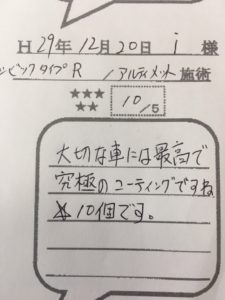 H 29年 12月 20日 i 様
シビックタイプR / アルティメット 施術
★★★
★★
10/5
大切な車には最高で
究極のコーティングですね
☆10個です。